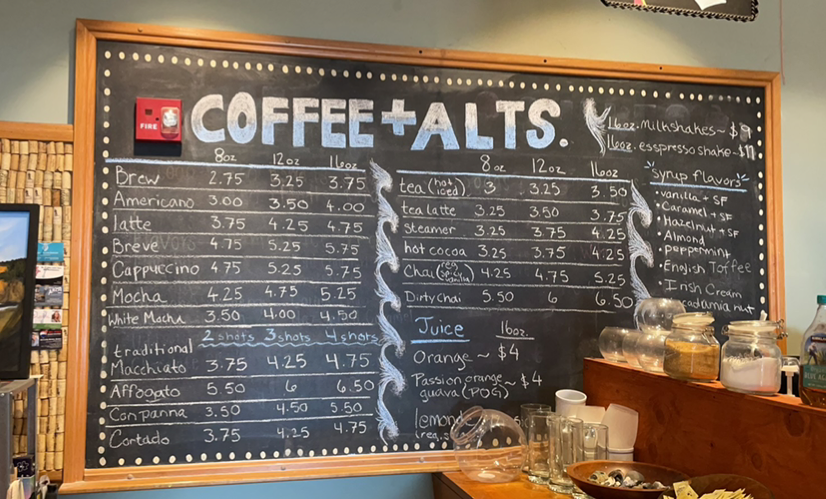 FIRE
COFFEE + ALTS.
8oz 12oz 16oz
Brew 2.75 3.25 3.75
Americano 3.00 3.50 4.00
latte 3.75 4.25 4.75
Breve 4.75 5.25 5.75
Cappuccino 4.75 5.25 5.75
Mocha 4.25 4.75 5.25
White Mocha 3.50 4.00 4.50
2 shots 3 shots 4 shots
traditional
Macchiato 3.75 4.25 4.75
Affogato 5.50 6 6.50
Con panna 3.50 4.50 5.50
Cortado 3.75 4.25 4.75
8oz 12oz 16oz
tea (hot iced) 3 3.25 3.50
tea latte 3.25 3.50 3.75
steamer 3.25 3.75 4.25
hot cocoa 3.25 3.75 4.25
Chai (reg spicy vanilla) 4.25 4.75 5.25
Dirty chai 5.50 6 6.50
Juice 16oz.
Orange ~ $4
Passion orange ~ $4
guava (POG)
16oz. milkshakes ~ $9
16oz. esspresso shake - $11
Syrup flavors
• vanilla + SF
• Caramel + SF
• Hazelnut + SF
• Almond
• peppermint
• English Toffee
• Irish Cream
nut